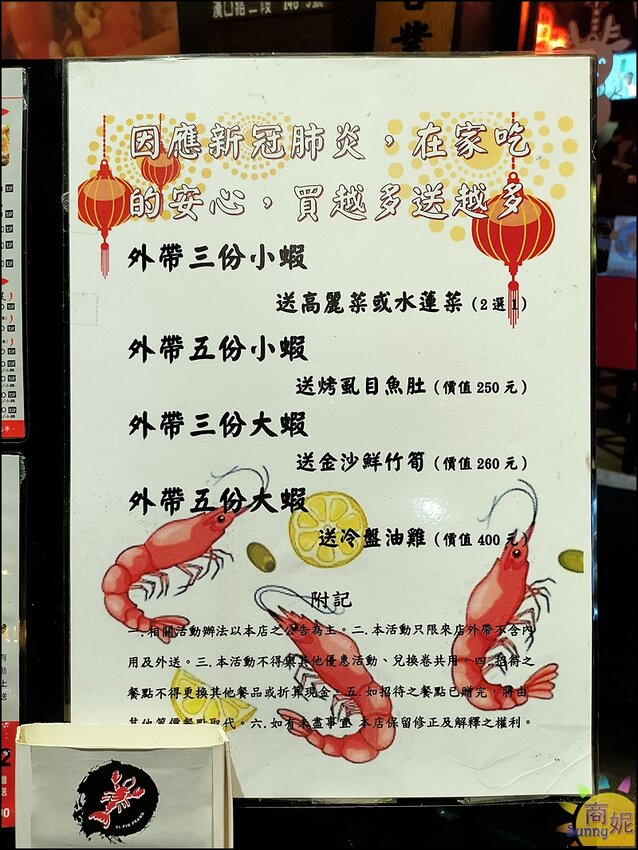 漢口路二段
因應新冠肺炎，在家吃
的安心，買越多送越多
外帶三份小蝦
送高麗菜或水蓮菜（2選1）
外帶五份小蝦
送烤虱目魚肚（價值250元）
外帶三份大蝦
送金沙鮮竹筍（價值260元）
外帶五份大蝦
送冷盤油雞（價值400元）
附記
一.相關活動辦法以本店之公告為主。二.本活動只限來店外帶不含內
用及外送。三.本活動不得與其他優惠活動、兌換卷共用。四.招待之
餐點不得更換其他餐品或折算現金。五.如招待之餐點已贈完，將由
其他等價餐點取代。六.如有未盡事宜 本店保留修正及解釋之權利。
商妮
Sunny